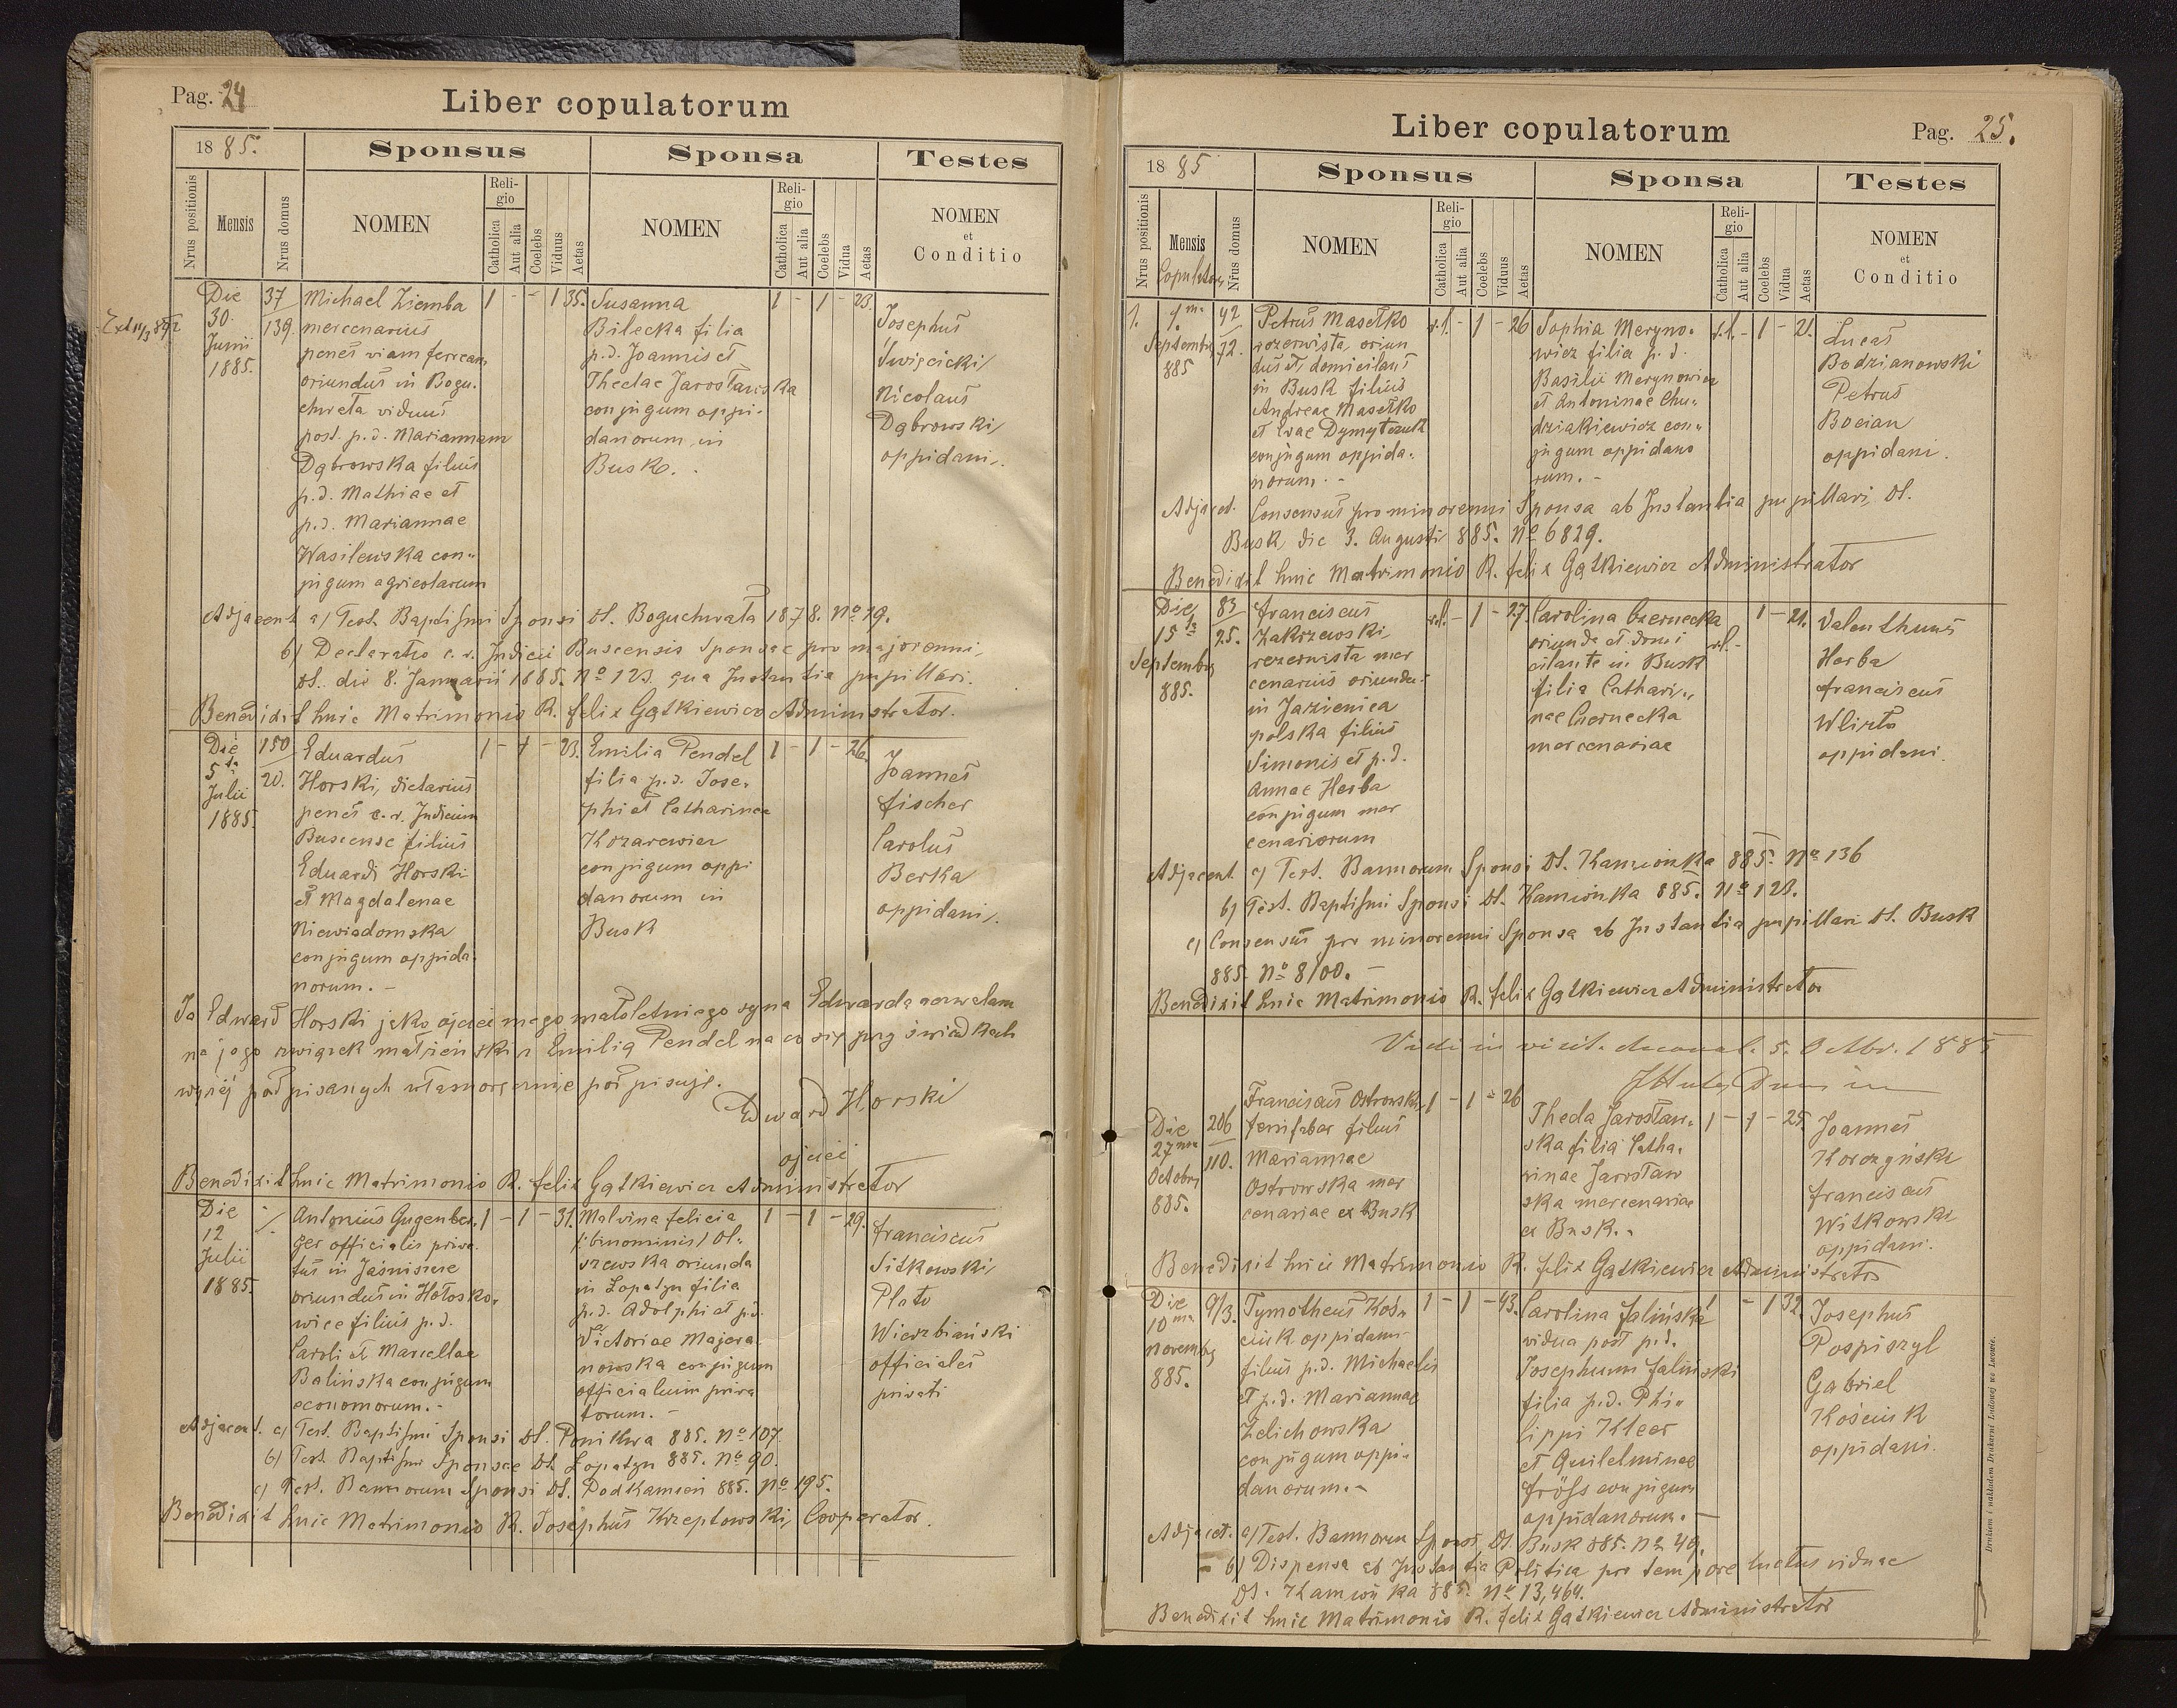 Pag. 24
Liber copulatorum
1885.
Sponsus
Sponsa
Testes
Nrus positionis
Mensis
Nrus domus
NOMEN
Religio
Catholica
Aut alia
Coelebs
Viduus
Aetas
NOMEN
Religio
Catholica
Aut alia
Coelebs
Vidua
Aetas
NOMEN
et
Conditio
Die
30.
Junii
1885.
37
139.
Michael Ziemba
mercenarius
penes viam ferream
oriundus in Bogu-
chwała viduus
post. p.d. Mariannam
Dąbrowska filius
p.d. Mathiae et
p.d. Mariannae
Wasilewska con-
jugum agricolarum
1 - - 1 35.
Susanna
Bilecka filia
p.d. Joannis et
Theclae Jarosławska
conjugum oppi-
danorum in
Busk.
1 - 1 - 23.
Josephus
Święcicki,
Nicolaus
Dąbrowski,
oppidani.
Adjacent a) Test. Baptismi Sponsi dt. Boguchwała 1878. No 19.
b) Declaratio c.r. Judicii Buscensis Sponsae pro majorenni,
dt. die 8. Januarii 1885. No 123. qua Instantia pupillari.
Benedixit huic Matrimonio R. Felix Gątkiewicz Administrator.
Die
5ta
Julii
1885.
150
20.
Eduardus
Horski, dietarius
penes c.r. Judicium
Buscense filius
Eduardi Horski
et Magdalenae
Niewiadomska
conjugum oppida-
norum. -
1 - 1 - 23.
Emilia Pendel
filia p.d. Jose-
phi et Catharinae
Kozarewicz
conjugum oppi
danorum in
Busk
1 - 1 - 26.
Joannes
Fischer
Carolus
Berka
oppidani.
Ja Edward Horski jako ojciec mego małoletniego syna Edwarda zezwalam
na jego związek małżeński z Emilią Pendel na co się przy świadkach
wyżej podpisanych własnoręcznie podpisuję.
Edward Horski
ojciec
Benedixit huic Matrimonio R. Felix Gątkiewicz Administrator
Die
12
Julii
1885.
Antonius Gugenber-
ger officialis priva-
tus in Jaśniszcze
oriundus in Hołosko-
wice filius p.d.
Caroli et Marcellae
Balińska conjugum
economorum. -
1 - 1 - 31.
Malvina Felicia
/:binominis/ Ol-
szewska oriunda
in Łopatyn filia
p.d. Adolphi et p.d.
Victoriae Majera-
nowska conjugum
officialium priva
torum. -
1 - 1 - 29.
Franciscus
Sitkowski,
Plato
Wierzbiański
officiales
privati
Adjacent. a) Test. Baptismi Sponsi dt. Ponikwa 885. No 107.
b) Test. Baptismi Sponsae dt. Łopatyn 885. No 90.
c) Test. Bannorum Sponsi dt. Podkamień 885. No 195.
Benedixit huic Matrimonio R. Josephus Krzeptowski, Cooperator.
Liber copulatorum
Pag. 25.
1885
Sponsus
Sponsa
Testes
Nrus positionis
Mensis
Nrus domus
NOMEN
Religio
Catholica
Aut alia
Coelebs
Viduus
Aetas
NOMEN
Religio
Catholica
Aut alia
Coelebs
Vidua
Aetas
NOMEN
et
Conditio
1.
1ma
Septembris
885
42
72.
Petrus Masełko
rezerwista, oriun
dus et domicilans
in Busk filius
Andreae Masełko
et Evae Dymytczuk
conjugum oppida-
norum. -
r.l. - 1 - 26
Sophia Meryno-
wicz filia p.d.
Basilii Merynowicz
et Antoninae Chu-
dziakiewicz con-
jugum oppidano
rum. -
r.l. - 1 - 21.
Lucas
Bodzianowski
Petrus
Bocian
oppidani.
Adjacet. Consensus pro minorenni Sponsa ab Instantia pupillari, dt.
Busk, die 3. Augusti 885. No 6829.
Benedixit huic Matrimonio R. Felix Gątkiewicz Administrator
Die
15ta
Septembris
885.
83
25.
Franciscus
Zakrzewski,
rezerwista mer
cenarius oriundus
in Jazienica
polska filius
Simonis et p.d.
Annae Herba
conjugum mer
cenariorum
r.l. - 1 - 27
Carolina Czernecka
oriunda et domi
cilante in Busk
filia Cathari-
nae Czernecka
mercenariae
r.l. - 1 - 21.
Valenthinus
Herba
Franciscus
Wlizło
oppidani.
Adjacent. a) Test. Bannorum Sponsi dt. Kamionka 885. No 136
b) Test. Baptismi Sponsi dt. Kamionka 885. No 128.
c) Consensus pro minorenni Sponsa ab Instantia pupillari dt. Busk
885. No 8100. -
Benedixit huic Matrimonio R. Felix Gątkiewicz Administrator
Vidi in visit. decanal. 5. Octbr. 1885
Die
27ma
Octobris
885.
206
110.
Franciscus Ostrowski,
ferrifaber filius
Mariannae
Ostrowska mer
cenariae ex Busk
1 - 1 - 26
Thecla Jarosław-
ska filia Catha-
rinae Jarosław
ska mercenariae
ex Busk. -
1 - 1 - 25.
Joannes
Korczyński
Franciscus
Witkowski
oppidani.
Benedixit huic Matrimonio R. Felix Gątkiewicz Administrator
Die
10ma
Novembris
885.
9/3.
Tymotheus Koś-
ciuk oppidanus
filius p.d. Michaelis
et p.d. Mariannae
Zelichowska
conjugum oppi-
danorum. -
1 - 1 - 43.
Carolina Falińska
vidua post p.d.
Josephum Faliński
filia p.d. Phi-
lippi Kleer
et Quilelminae
Fröss conjugum
oppidanorum. -
1 - - 1 32.
Josephus
Pospiszyl
Gabriel
Kościuk
oppidani.
Adjacet. a) Test. Bannorum Sponsi dt. Busk 885. No 49.
b) Dispensa ab Instantia Politica pro tempore luctus viduae
dt. Kamionka 885. No 13,464.
Benedixit huic Matrimonio R. Felix Gątkiewicz Administrator
Drukiem i nakładem Drukarni Ludowej we Lwowie.